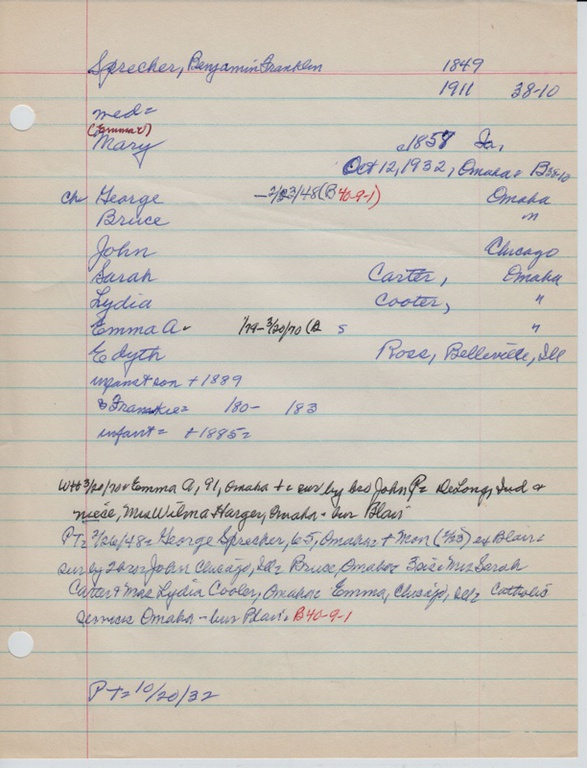 Sprecher, Benjamin Franklin 1849
1911 38-10
med=
(Emma?)
Mary c1857 Ia,
Oct 12, 1932, Omaha= B38-10
ch George —2/23/48 (B 40-9-1) Omaha
Bruce "
John Chicago
Sarah Carter, Omaha
Lydia Cooter, "
Emma A- 1/79-3/20/70 (B s "
Edyth Ross, Belleville, Ill
infant son + 1889
Frankie= 180- 183
infant= +1885=
3/20/70= Emma A, 91, Omaha += sur by bro John P= DeLong, Ind &
niece, Mrs Wilma Harger, Omaha- bur Blair
PT= 2/26/48= George Sprecher, 65, Omaha= + Mon (2/23) ex Blair=
sur by 2 bros John Chicago, Ill= Bruce, Omaha= 3 sis= Mrs Sarah
Carter & Mrs Lydia Cooter, Omaha= Emma, Chicago, Ill= Catholic
services Omaha - bur Blair= B40-9-1
PT= 10/20/32